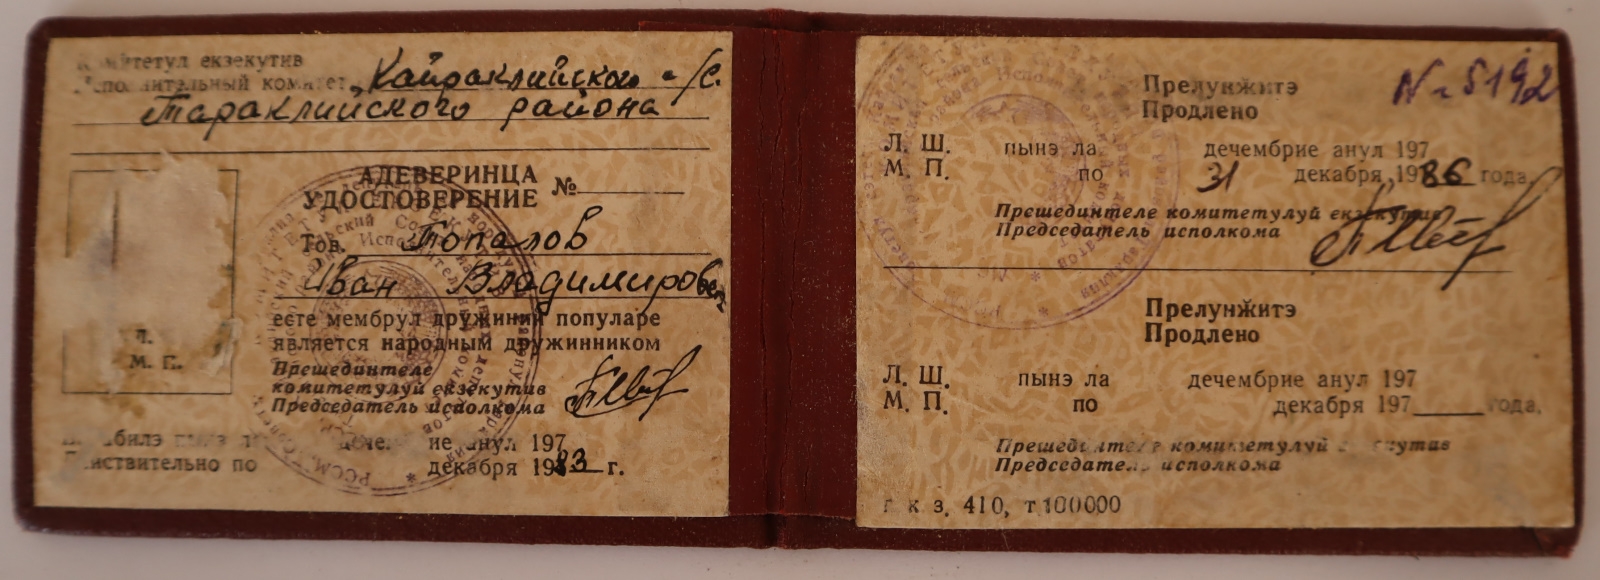 Комитетул екзекутив
Исполнительный комитет Кайраклийского с/с.
Тараклийского района
АДЕВЕРИНЦА
УДОСТОВЕРЕНИЕ №
Тов. Топалов
Иван Владимирович
есте мембрул дружиний популаре
является народным дружинником
Л.
М. П.
Прешединтеле
комитетулуй екзекутив
Председатель исполкома
ие анул 197
Действительно по декабря 1983 г.
№ 5192
Прелунжитэ
Продлено
Л. Ш. пынэ ла дечембрие анул 197
М. П. по 31 декабря 1986 года.
Прешединтеле комитетулуй екзекутив
Председатель исполкома
Прелунжитэ
Продлено
Л. Ш. пынэ ла дечембрие анул 197
М. П. по декабря 197 года.
Прешединтеле комитетулуй екзекутив
Председатель исполкома
к з. 410, т.100000